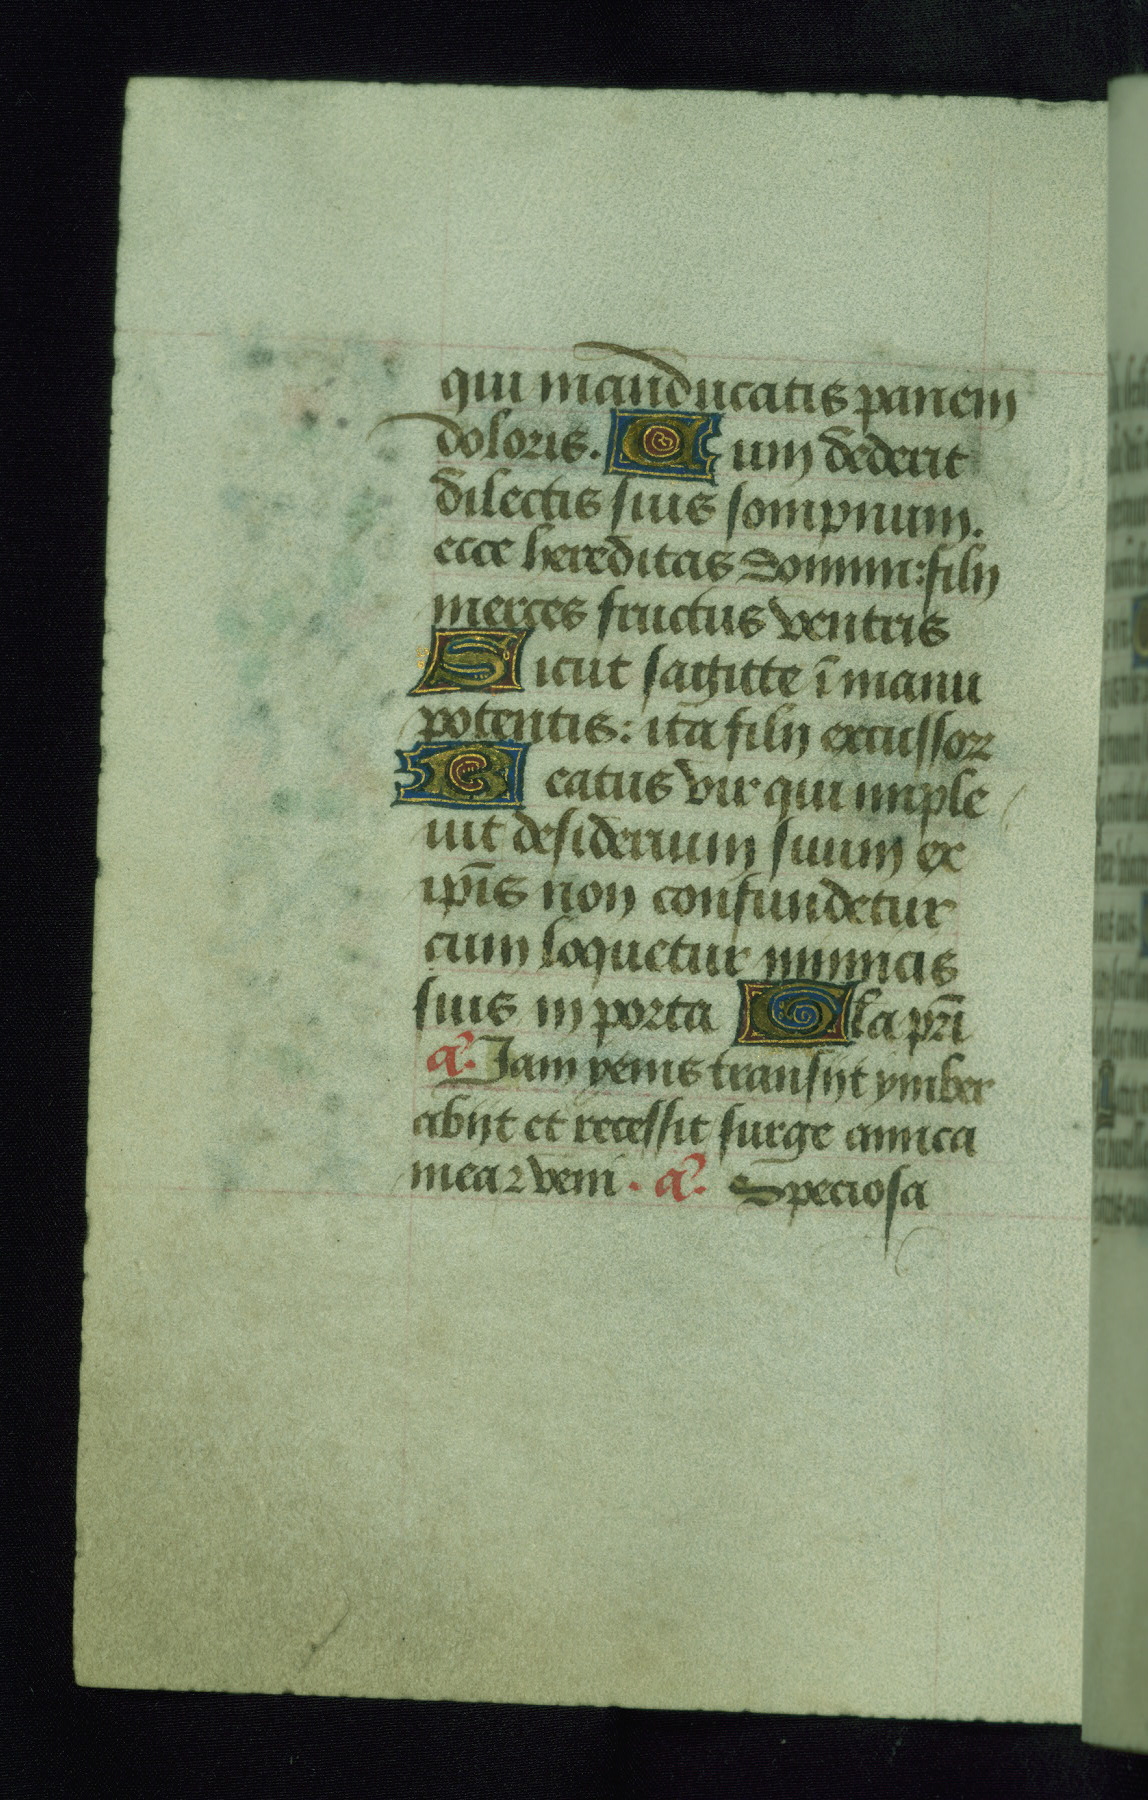 qui manducatis panem
doloris. Cum dederit
dilectis suis sompnum.
ecce hereditas Domini: filij
merces fructus ventris
Sicut sagitte ī manu
potentis: ita filij excussoꝝ
Beatus vir qui imple
uit desiderium suum ex
ip̄is non confundetur
cum loquetur inimicis
suis in porta Gła pr̄i
a. Jam yems transijt ymber
abijt et recessit surge amica
mea ⁊ veni. a. Speciosa